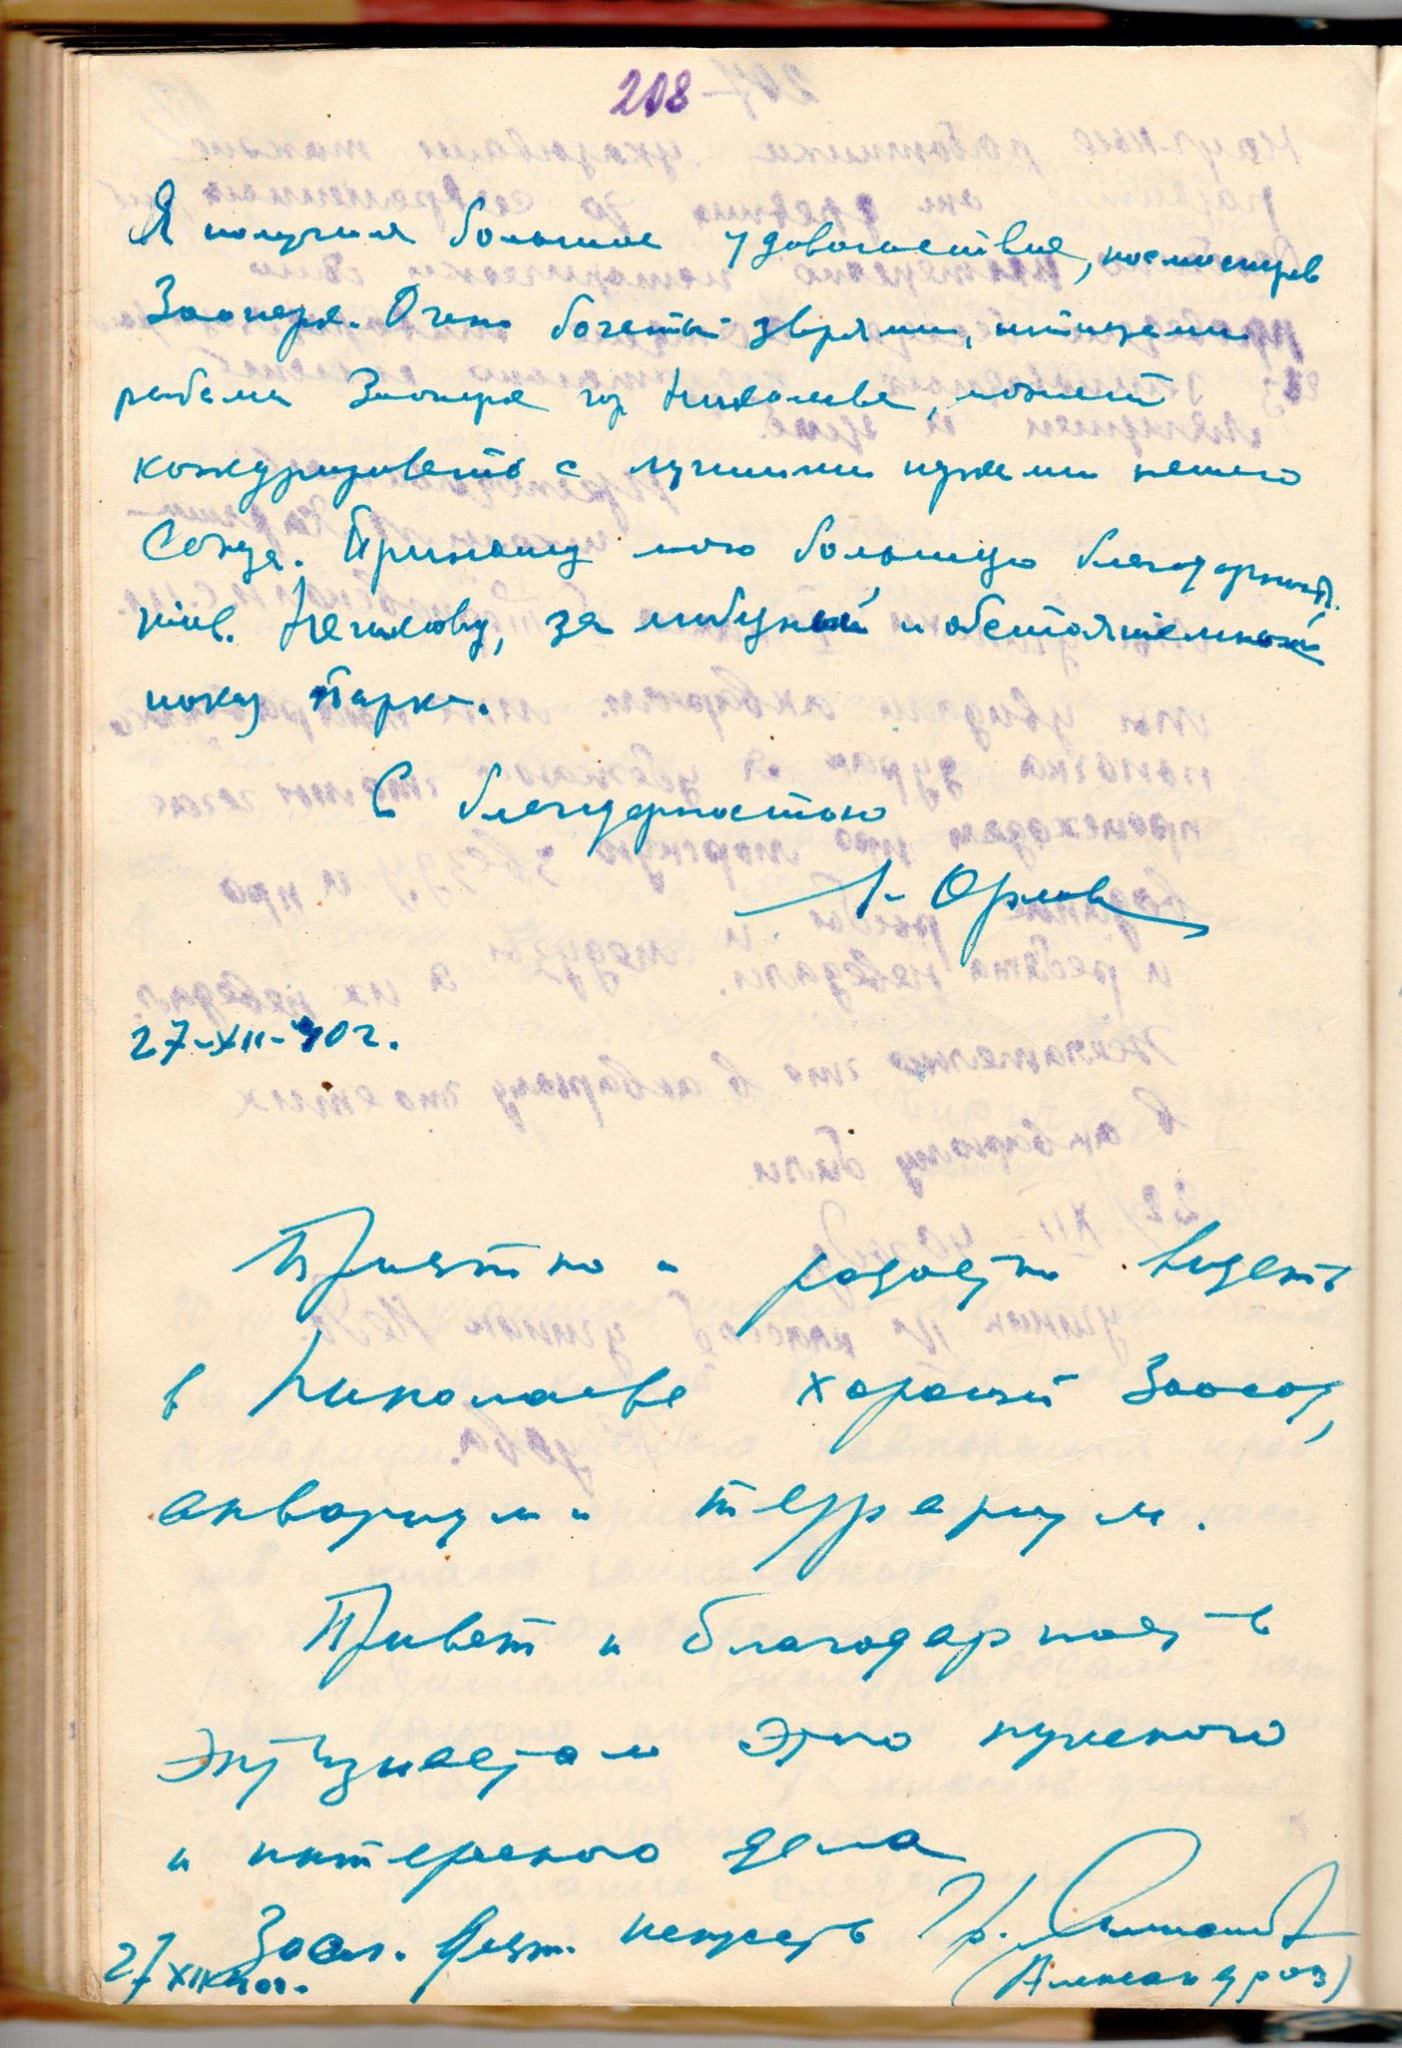 208
Я получил большое удовольствие, посмотрев
Зоопарк. Очень богатый зверями, птицами
рыбами Зоопарк гор Николаева, может
конкурировать с лучшими парками нашего
Союза. Приношу мою большую благодарность
за любезный и обстоятельный
показ Парка.
С благодарностью
Орлов
27-XII-40 г.
Приятно и радостно видеть
в Николаеве хороший Зоосад,
аквариум и террариум.
Привет и благодарность
энтузиастам этого нужного
и интересного дела
Засл. деят. искусств Гр.
27 XII 40 г. (Александров)